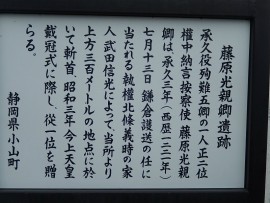 藤原光親卿遺跡
承久役殉難五卿の一人正二位
権中納言按察使 藤原光親
卿は、承久三年(西歴一二二一年)
七月十二日 鎌倉護送の任に
当たれる執権北條義時の家
人 武田信光によって当所より
上方三百メートルの地点に於
いて斬首、昭和三年今上天皇
戴冠式に際し、従一位を贈
らる。
静岡県小山町